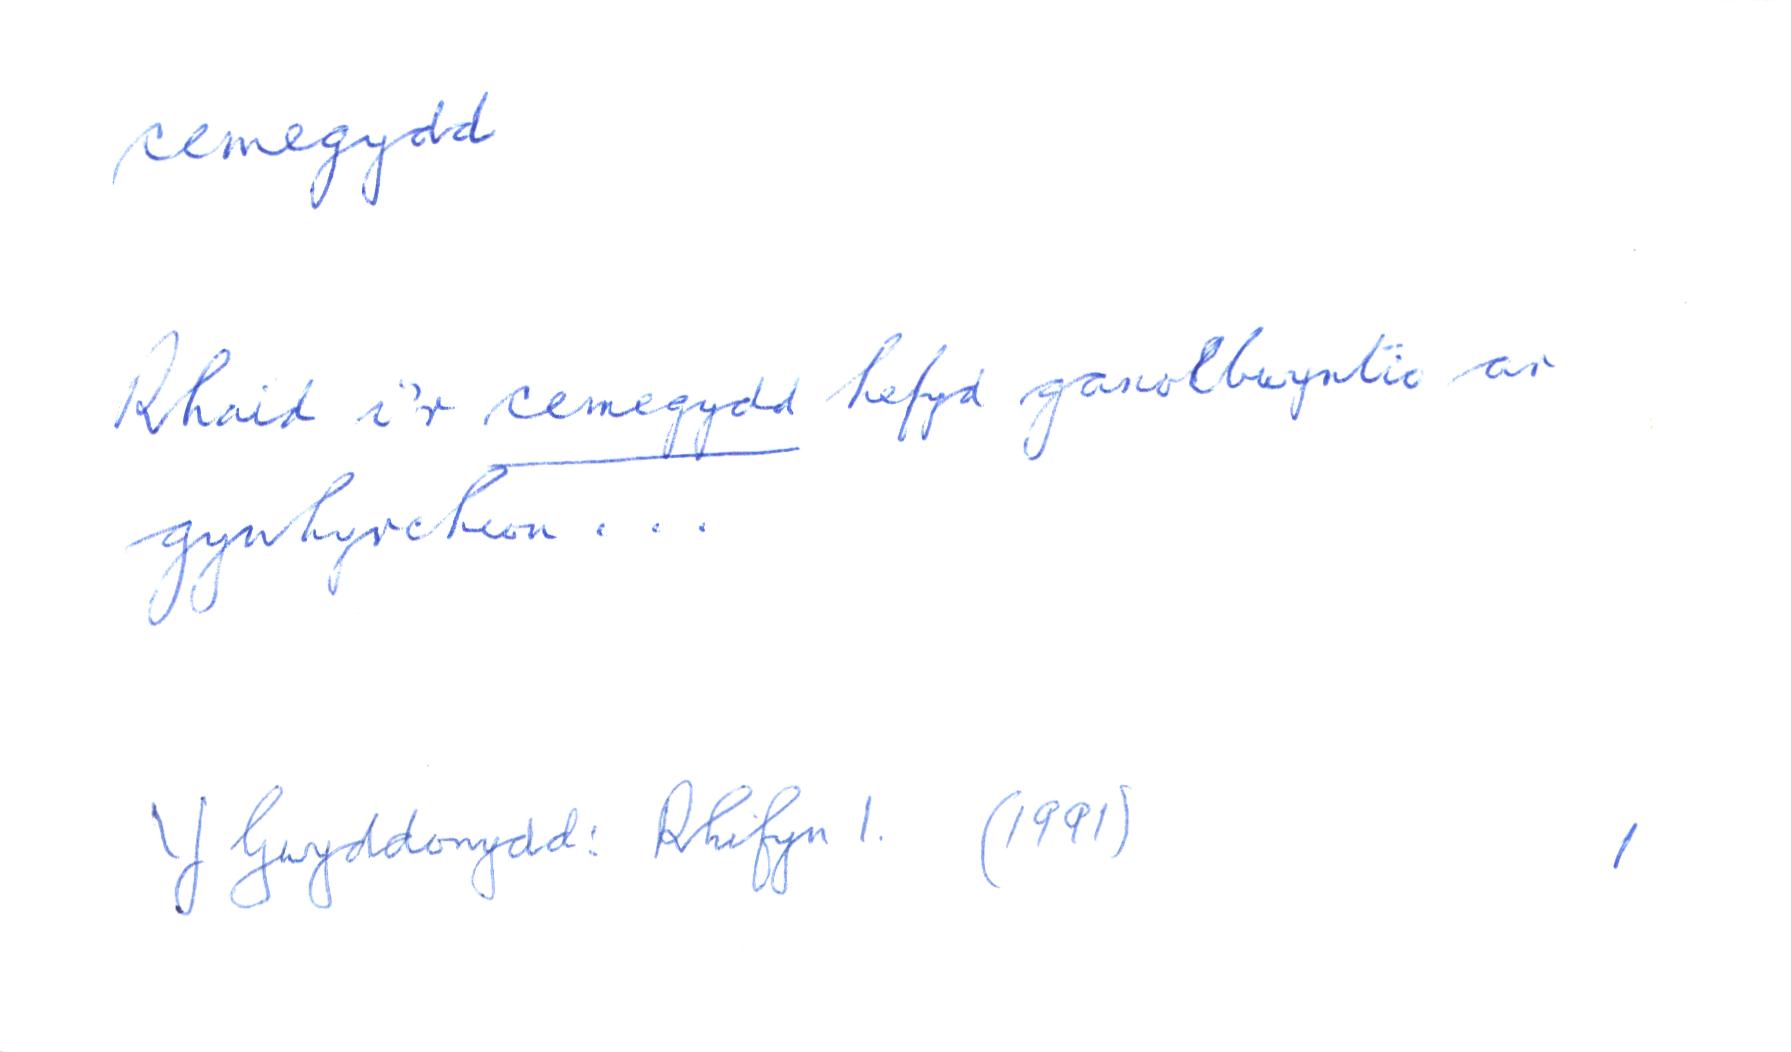 cemegydd
Rhaid i'r cemegydd hefyd ganolbwyntio ar
gynhyrchion . . .
Y Gwyddonydd: Rhifyn 1. (1991) 1